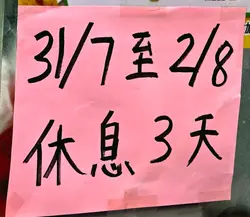 31/7至2/8
休息3天